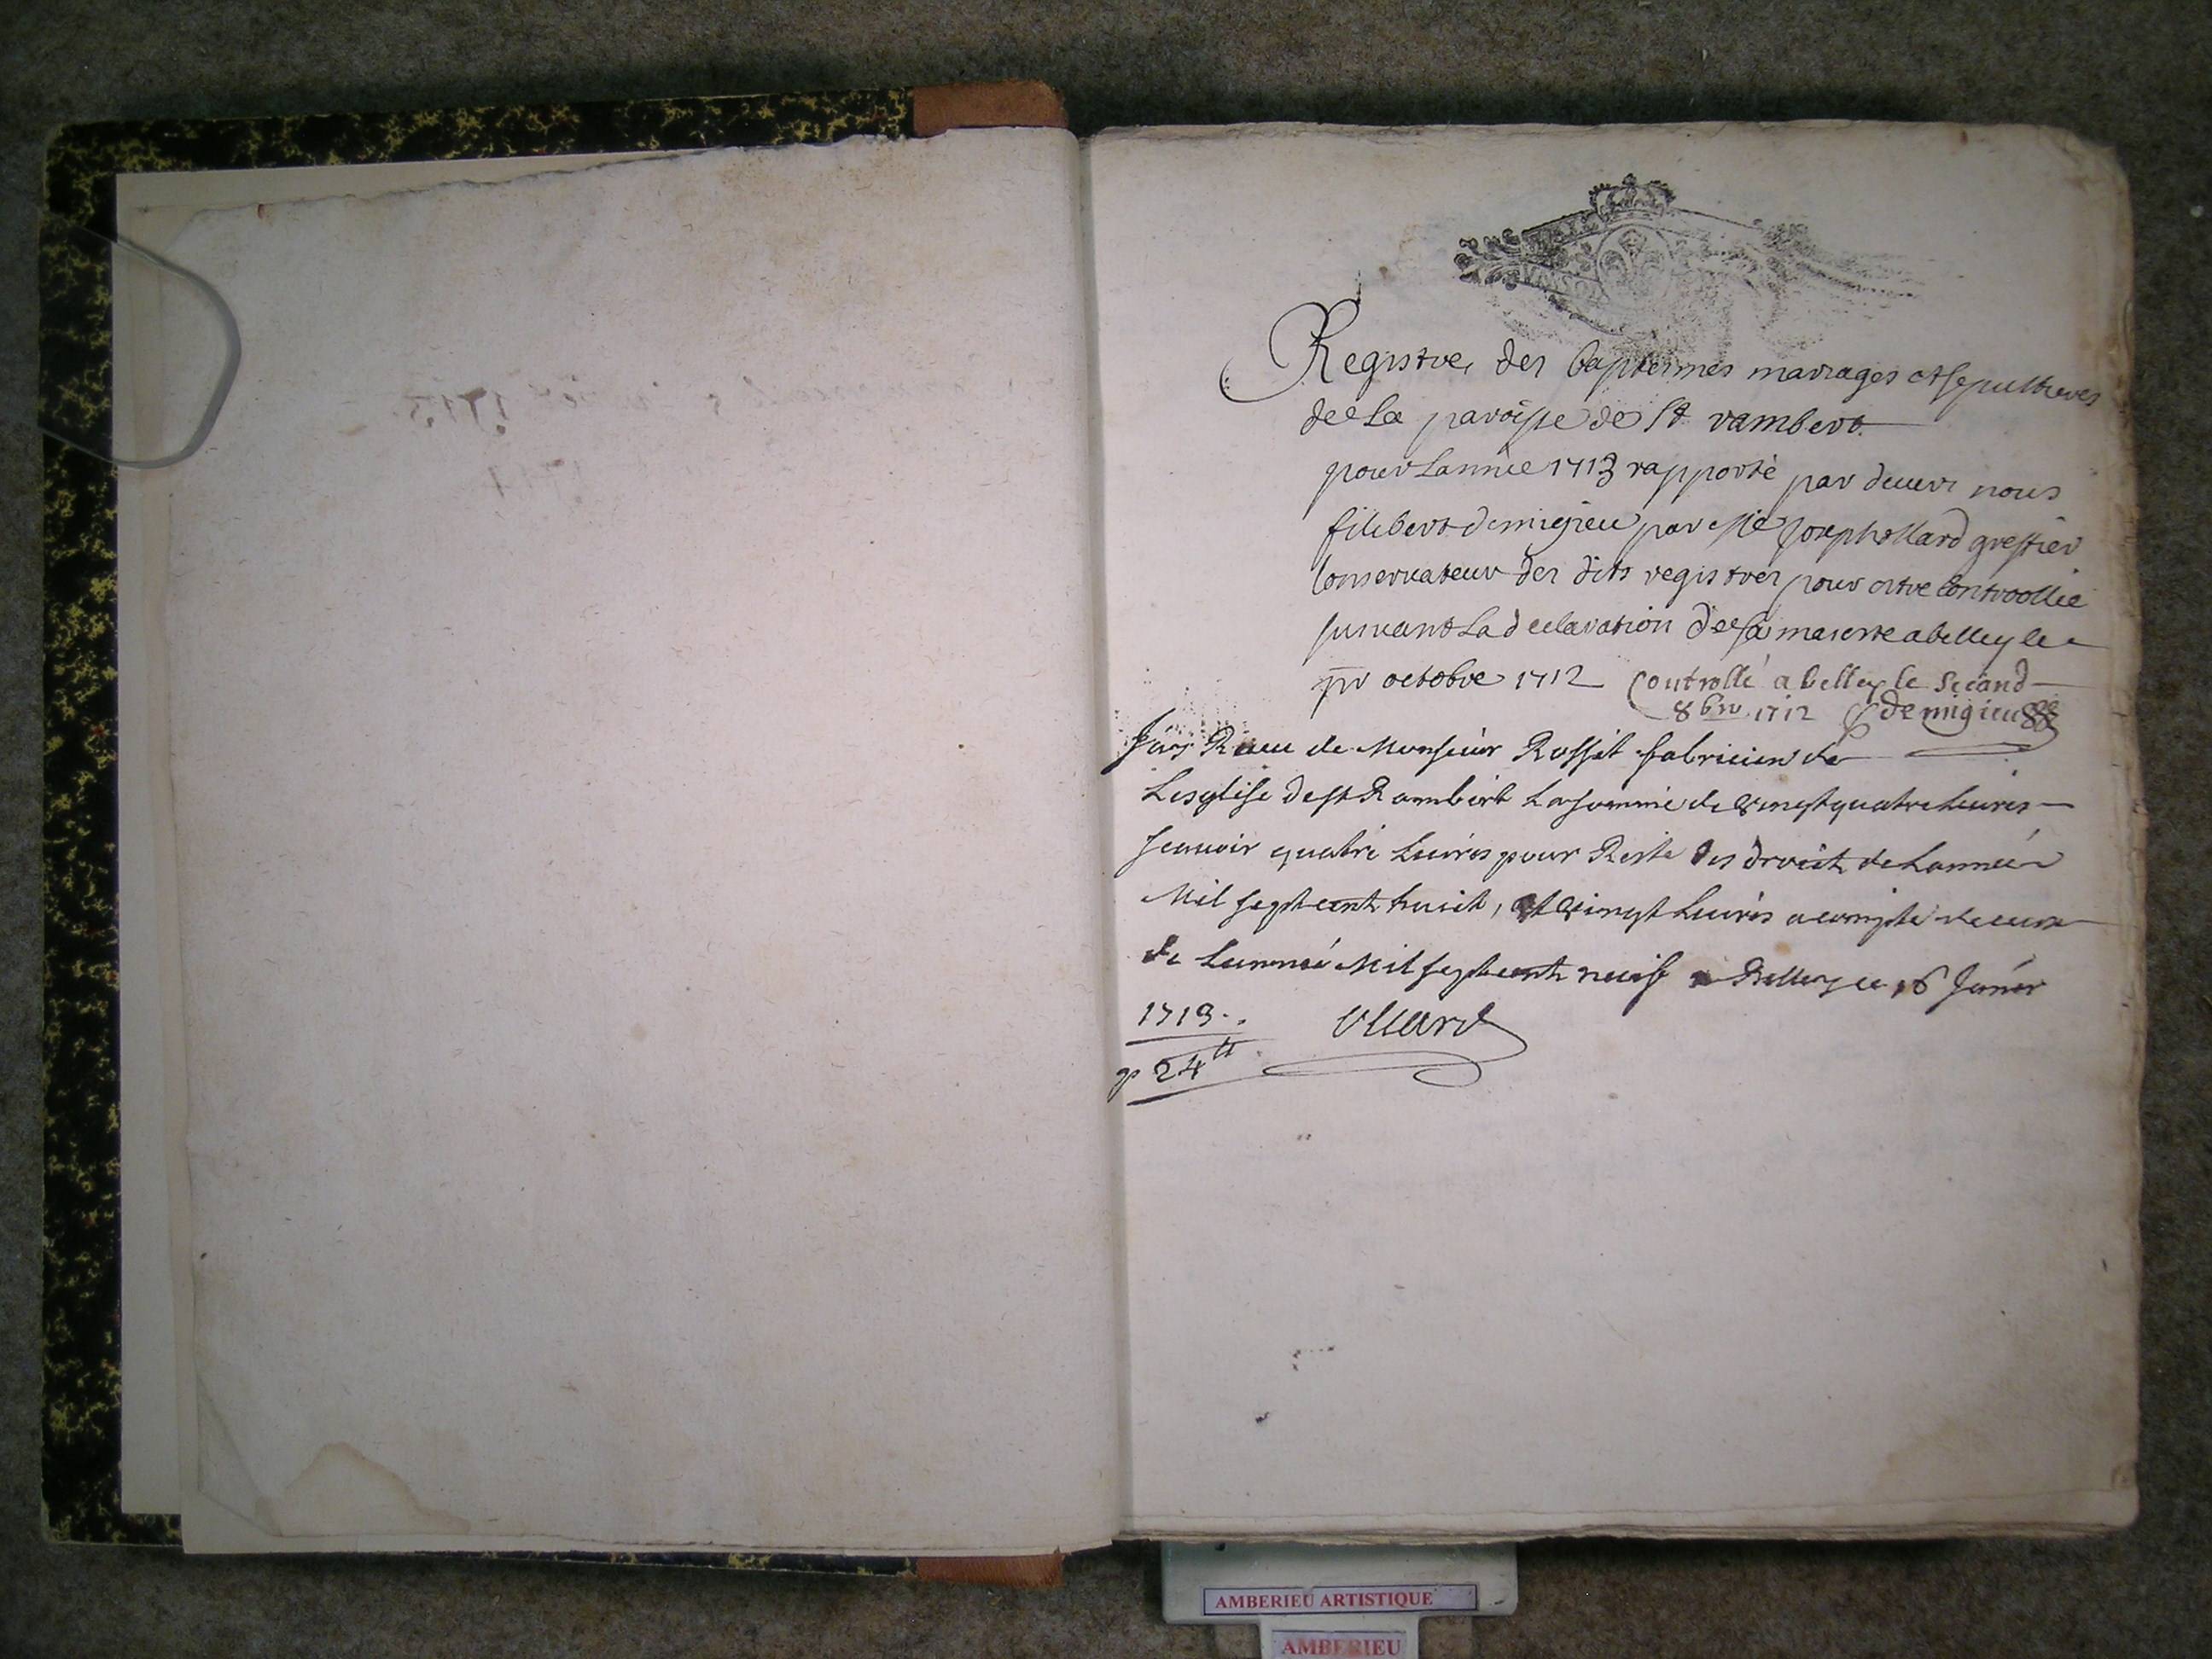 Registre des baptesmes mariages et sepultures
de la paroisse de St rambert
pour Lannee 1713 rapporté par devers nous
filibert demigieu par Me Joseph ollard greffier
Conservateur des dits registres pour estre Controollée
suivant La declaration de sa majesté a belley le
pr octobre 1712 Controllé a belley le second
8bre 1712 demigieu
Jay Receu de Monsieur Rosset fabricien de
Lesglise de st Rambert La somme de vingt quatre Livres
scavoir quatre Livres pour Reste des droict de Lannée
Mil sept cent huict, et vingt Livres a compte de ceux
de Lannée Mil sept cent neuf a Belley ce 16 Janer
1713
ollard
p 24tt
1713
AMBERIEU ARTISTIQUE
AMBERIEU